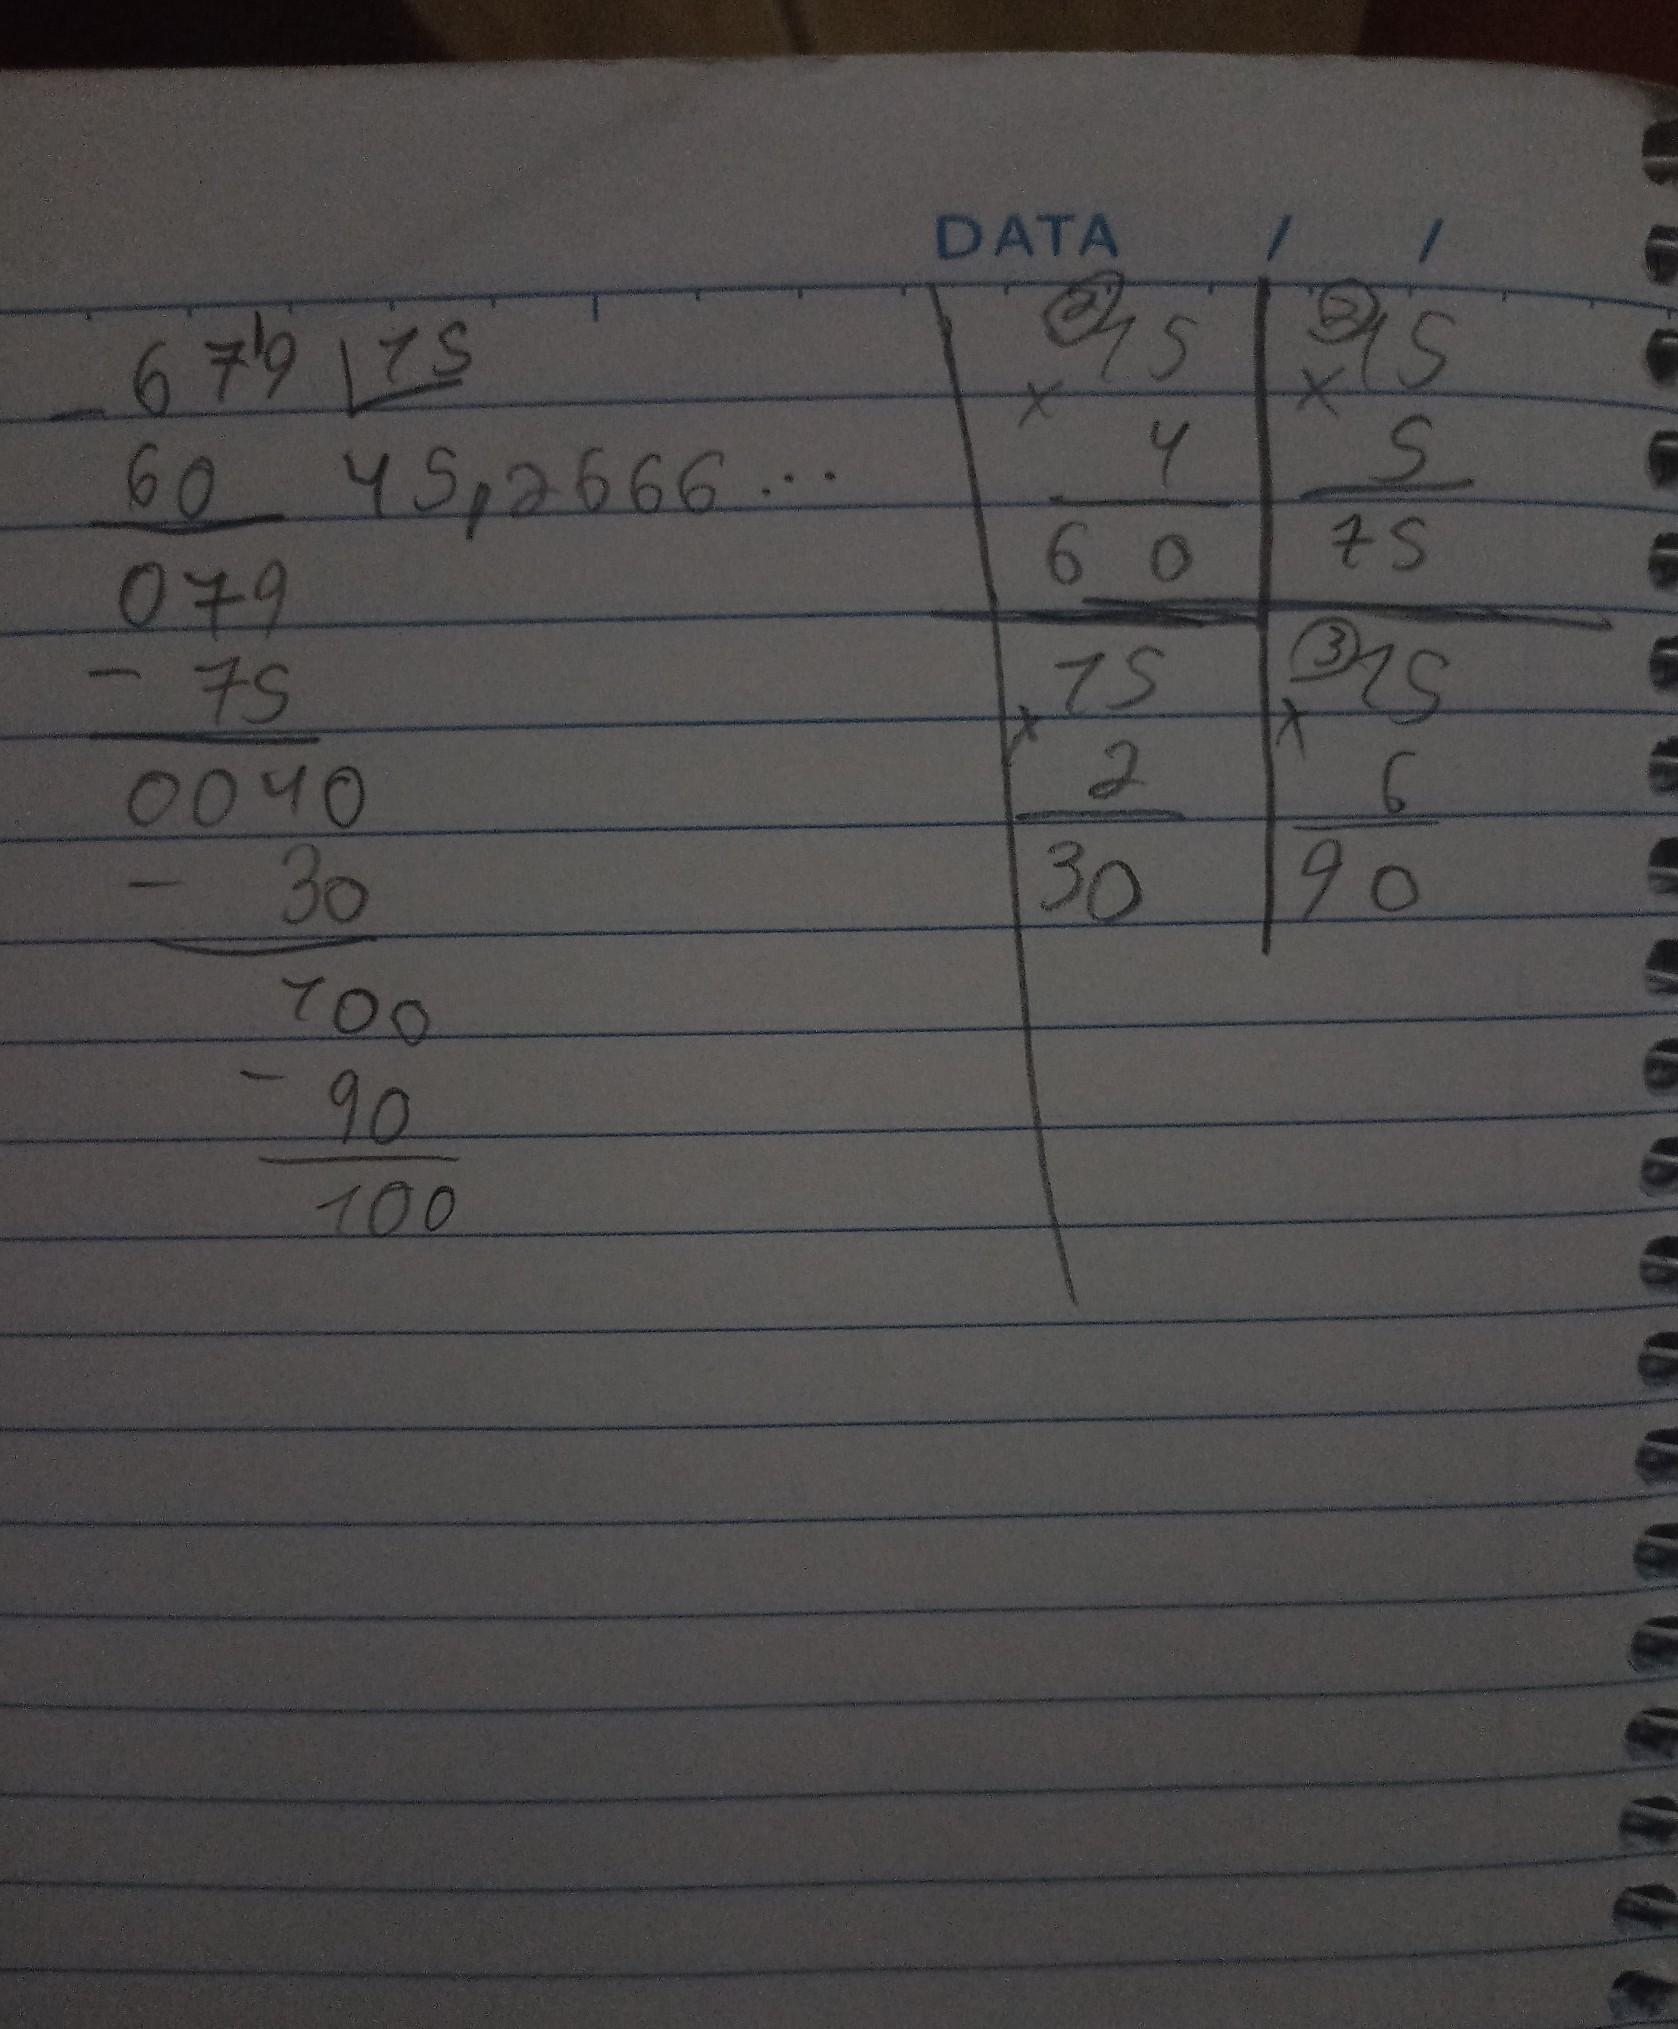 DATA / /
- 679 15
60 45,2666...
079
- 75
0040
- 30
100
- 90
100
② 15
x 4
60
② 15
x 5
75
15
x 2
30
③ 15
x 6
90